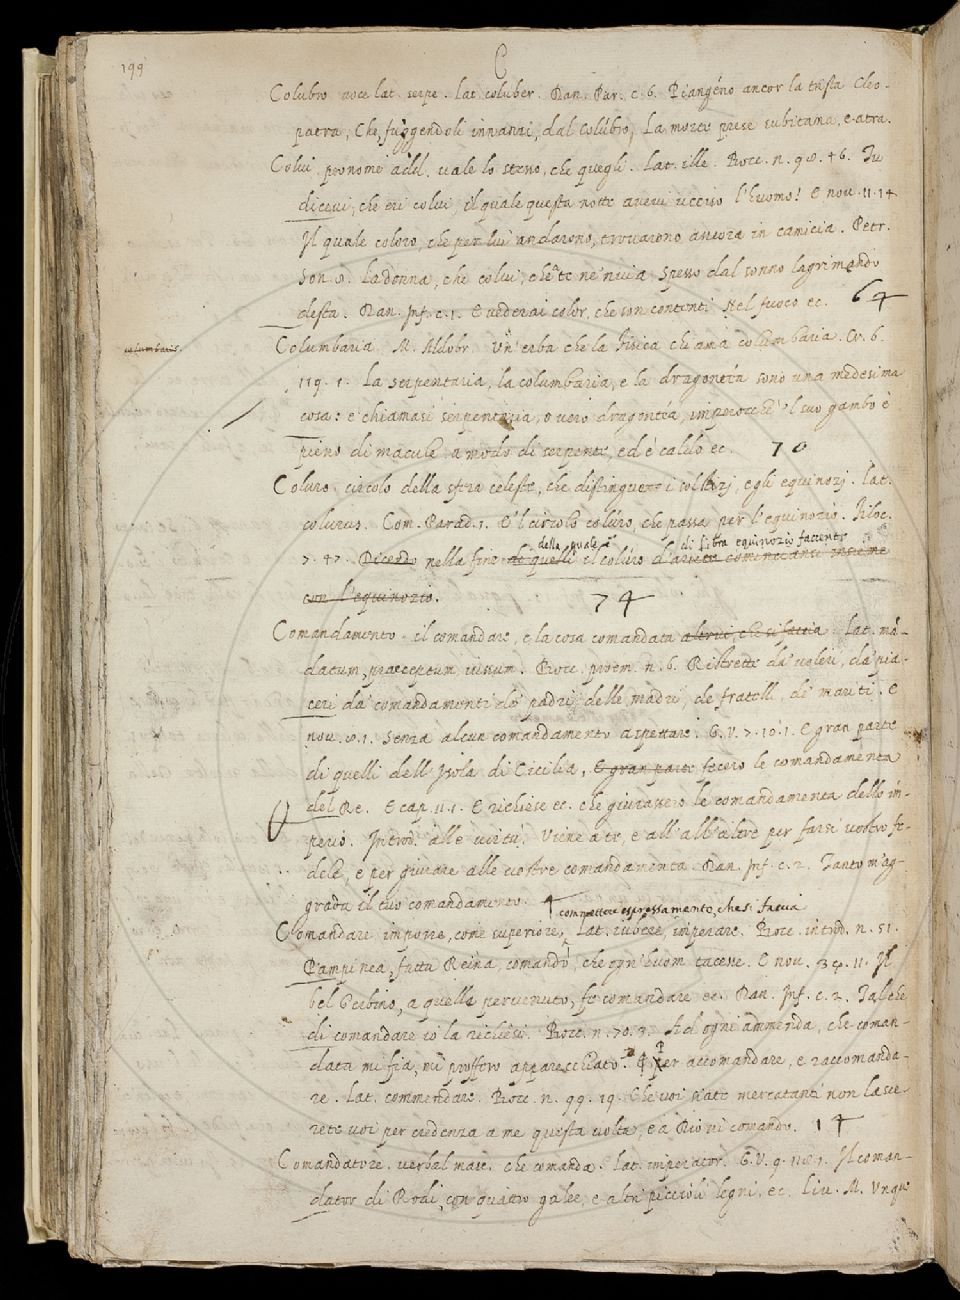 199
C
Colubro voce lat. serpe. lat. coluber. Dan. Par. c. 6. Piangéne ancor la trista Cleo-
patra, Che, fuggendoli innanzi, dal colúbro, La morte prese subitana, e atra.
Colui pronome add. vale lo steso, che quegli. Lat. ille. Bocc. n. 98. 46. Tu
dicevi, che eri colui, il quale questa notte avevi ucciso l'huomo! E nov. 11. 14
Il quale coloro, che per lui andarono, trovarono ancora in camicia. Petr.
Son. 8. La donna, che colui, che a te ne 'nvia Spesso dal sonno lagrimando
desta. Dan. Inf. c. 1. E vederai color, che son contenti Nel fuoco ec. 64
columbaria
Columbaria. M. Aldobr. Un' erba che la fisica chiama columbaria. Cr. 6.
119. 1. La serpentaria, la columbaria, e la dragontéa sono una medesima
cosa: e chiamasi serpentaria, o vero dragontéa, imperocché 'l suo gambo è
pieno di macule a modo di serpente, ed è caldo ec. 70
Coluro circolo della sfera celeste, che distingue i solstizj, e gli equinozj. lat.
colurus. Com. Parad. 1. E 'l circolo colúro, che passa per l'equinozio. Filoc.
della quale il di libra equinozio facente
7. 47. Dicendo nella fine de quelli il coluro d'ariete cominciansi insieme
con l'equinozio. 74
Comandamento il comandare, e la cosa comandata altrui, che si faccia. Lat. má-
datum, praeceptum iussum. Bocc. proem. n. 6. Ristrette da' voleri, da' pia-
ceri da' comandamenti de' padri, delle madri, de fratelli, de' mariti. E
nov. 8. 1. Senza alcun comandamento aspettare. G. V. 7. 10. 1. E gran parte
di quelli dell' Isola di Cicilia, E gran parte fecero le comandamenta
del Re. E cap. 11. 1. E richiese ec. che giurassero le comandamenta dello in-
perio. Introd. alle virtú. Viene a te, e all' altre per farsi vostro fe-
dele, e per giurare alle vostre comandamenta. Dan. Inf. c. 2. Tanto m'ag-
grada il tuo comandamento. 4
commettere espressamento, che si faccia
Comandare imporre, come superiore, Lat. iubere, imperare. Bocc. introd. n. 51.
Pampinea, fatta Reina, comandò, che ogn' huom tacesse. E nov. 34. 11. Il
bel Gerbino, a quella pervenuto, fe comandare ec. Dan. Inf. c. 2. Tal che
di comandare io la richiesi. Bocc. n. 70. 3. Ad ogni ammenda, che coman-
data mi fia, mi proffero apparecchiato. ¶ Per accomandare, e raccomanda-
re. Lat. commendare. Bocc. n. 99. 19. Che voi siate mercatanti non lasce-
rete voi per credenza a me questa volta, e a Dio vi comando. 14
Comandatore. verbal masc. che comanda. Lat. imperator. G. V. 9. 118. 1. Il coman-
dator di Rodi, con quattro galee, e altri piccioli legni, ec. Liv. M. Unque